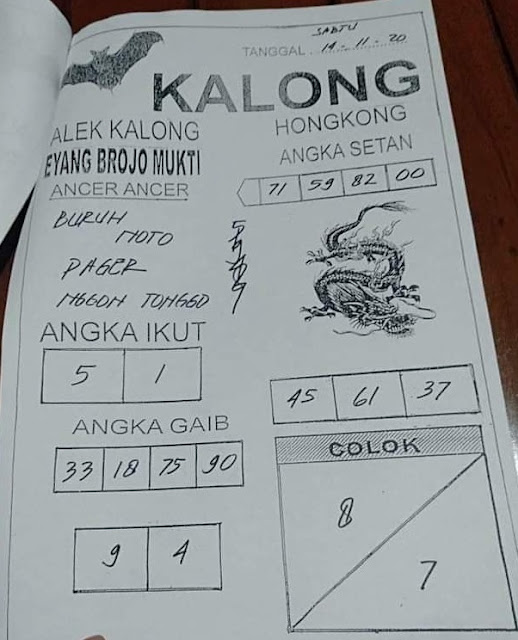 SABTU
TANGGAL . 14 - 11 - 20
KALONG
ALEK KALONG
EYANG BROJO MUKTI
ANCER ANCER
HONGKONG
ANGKA SETAN
71 59 82 00
BURUH
MOTO
PAGER
NGGON TONGGO
ANGKA IKUT
5 1
45 61 37
ANGKA GAIB
33 18 75 90
9 4
COLOK
8
7